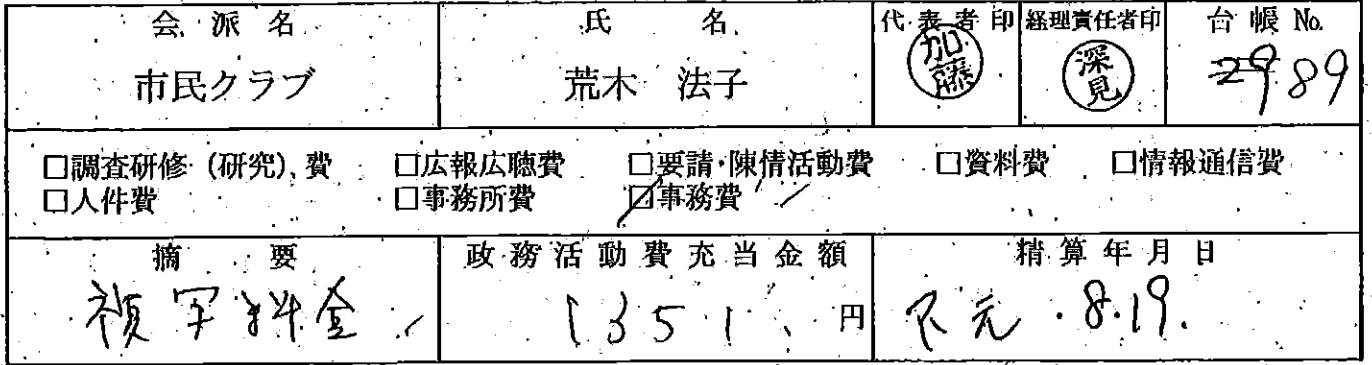 会派名 氏名 代表者印 経理責任者印 台帳 No.
市民クラブ 荒木 法子 加藤 深見 29 89
□調査研修(研究)費 □広報広聴費 □要請・陳情活動費 □資料費 □情報通信費
□人件費 □事務所費 ☑事務費
摘要 政務活動費充当金額 精算年月日
複写料金 1351 円 R元.8.19.